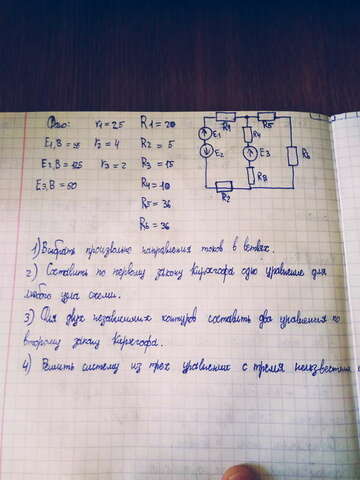 Дано: r1=25 R1=20
E1,В=35 r2=4 R2=5
E2,В=125 r3=2 R3=15
E3,В=50 R4=10
R5=36
R6=36
R1 R5
E1 R4
E2 E3 R6
R3
R2
1) Выбрать произвольно направления токов в ветвях.
2) Составить по первому закону Кирхгофа одно уравнение для
любого узла схемы.
3) Для двух независимых контуров составить два уравнения по
второму закону Кирхгофа.
4) Решить систему из трех уравнений с тремя неизвестными